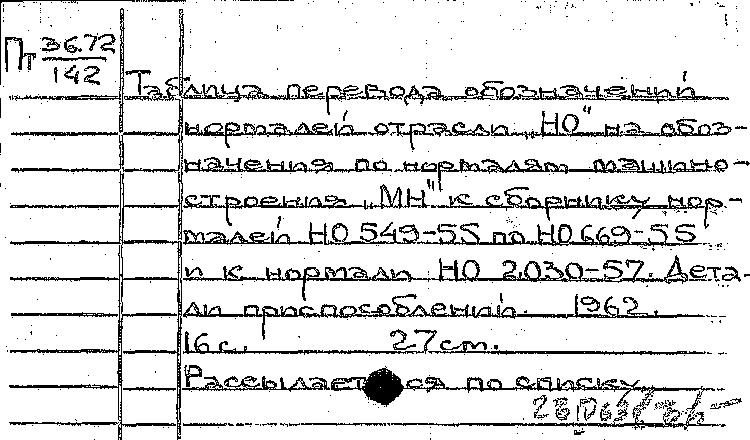 Пт 36.72
142
Таблица перевода обозначений
нормалей отрасли „НО" на обоз-
начения по нормалям машино-
строения „МН" к сборнику нор-
малей НО 549-55 по НО 669-55
и к нормали НО 2.030-57. Дета-
ли приспособлений. 1962.
16 с. 27 см.
Рассылается по списку